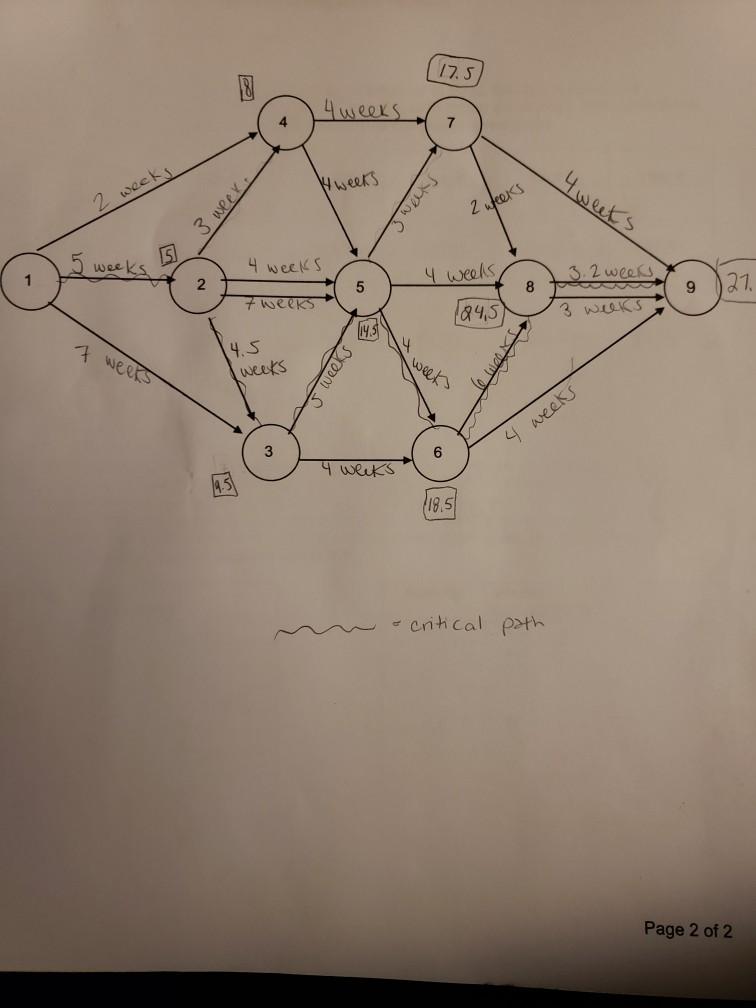 17.5
8
4 weeks
4
7
2 weeks
3 week.
4 weeks
3 weeks
2 weeks
4 weeks
5
5 weeks
4 weeks
4 weeks
3.2 weeks
1
2
5
8
9
27.
7 weeks
3 weeks
24,5
14.5
7 weeks
4.5
weeks
5 weeks
4 weeks
6 weeks
4 weeks
3
6
4 weeks
9.5
18.5
= critical path
Page 2 of 2